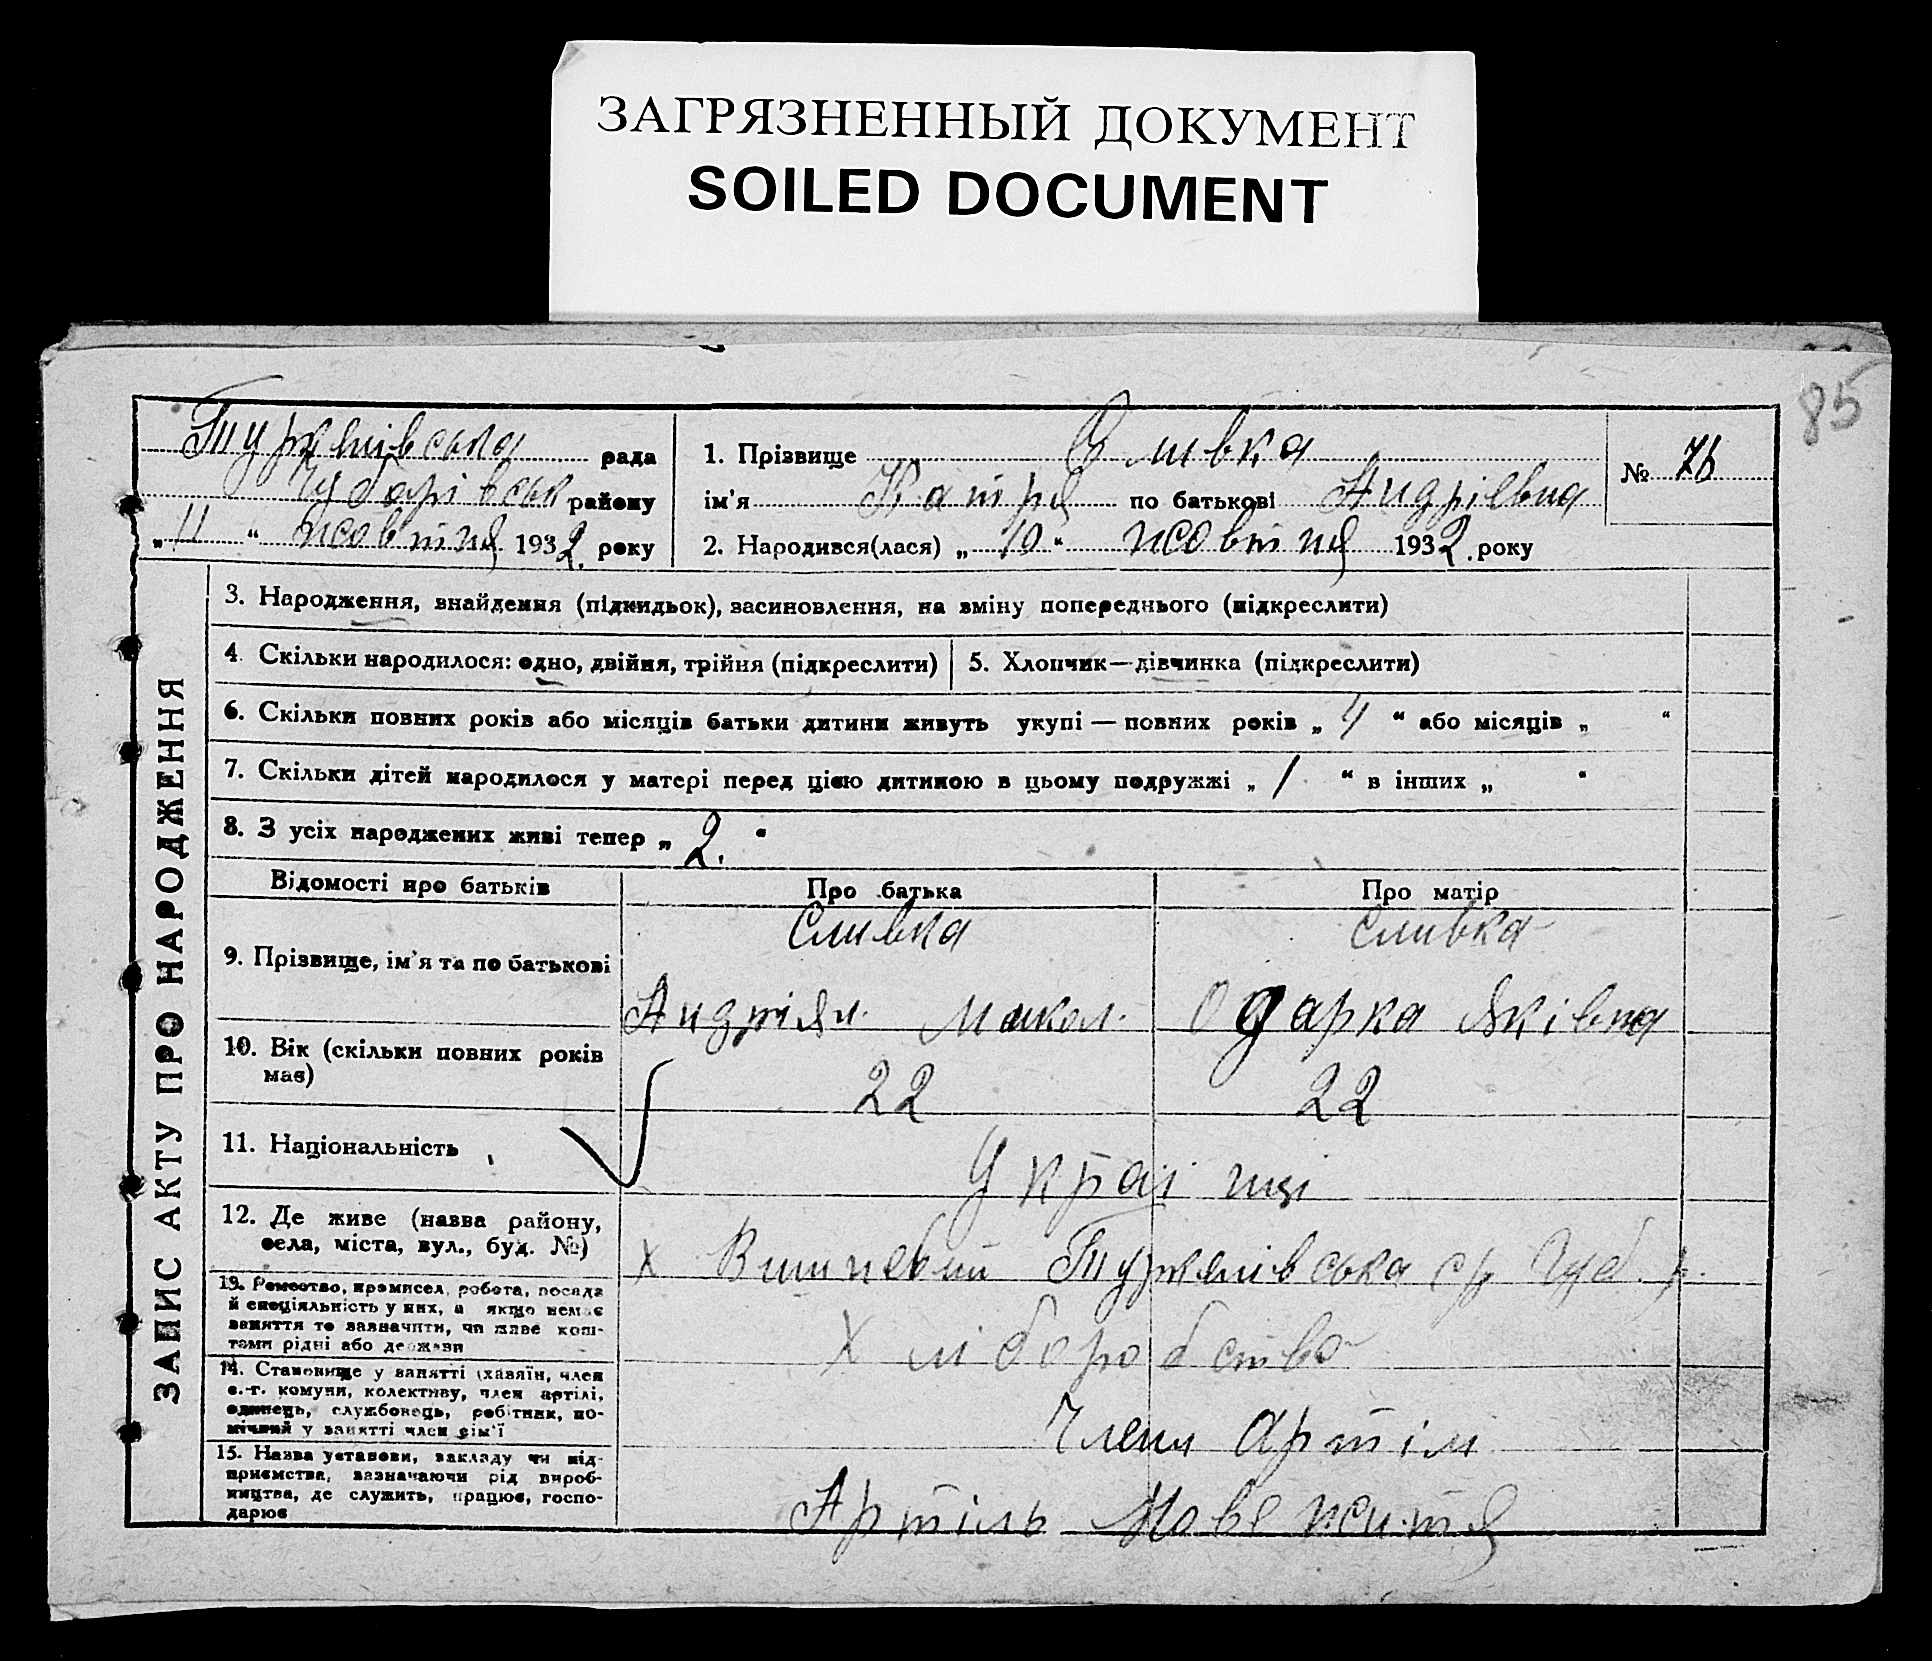 ЗАГРЯЗНЕННЫЙ ДОКУМЕНТ
SOILED DOCUMENT
85
Туркенівська рада
Чубарівськ району
„ 11 “ жовтня 1932. року
1. Прізвище Сливка
ім'я Катря по батькові Андріевна
2. Народився(лася) „ 10 “ жовтня 1932. року
№ 76
ЗАПИС АКТУ ПРО НАРОДЖЕННЯ
3. Народження, знайдення (підкидьок), засиновлення, на зміну попереднього (підкреслити)
4. Скільки народилося: одно, двійня, трійня (підкреслити)
5. Хлопчик—дівчинка (підкреслити)
6. Скільки повних років або місяців батьки дитини живуть укупі — повних років „ 4 “ або місяців „ “
7. Скільки дітей народилося у матері перед цією дитиною в цьому подружжі „ 1 “ в інших „ “
8. З усіх народжених живі тепер „ 2. “
Відомості про батьків
Про батька
Про матір
9. Прізвище, ім'я та по батькові
Сливка
Сливка
Андріян. Микол.
Одарка Яківна
10. Вік (скільки повних років має)
22
22
11. Національність
Українці
12. Де живе (назва району,
села, міста, вул., буд. №)
х Вишневий Туркенівська ср Чуб. р.
13. Ремество, промисел, робота, посада
й спеціяльність у них, а якщо немає
заняття то зазначити, чи живе кош-
тами рідні або держави
х хліборобство
14. Становище у занятті (хазяїн, член
с.-г. комуни, колективу, член артілі,
одинець, службовець, робітник, по-
мічний у занятті член сім'ї
Член артіли
15. Назва установи, закладу чи під-
приємства, зазначаючи рід вироб-
ництва, де служить, працює, госпо-
дарює
Артіль Нове життя